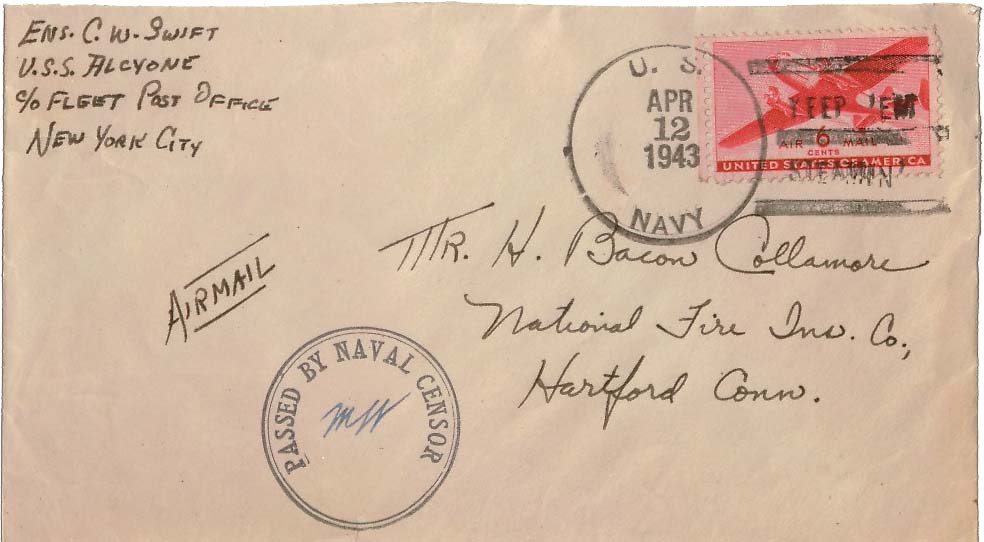 Ens. C. W. Swift
U.S.S. Alcyone
c/o Fleet Post Office
New York City
U. S.
APR
12
1943
NAVY
AIR 6 MAIL
CENTS
UNITED STATES OF AMERICA
KEEP 'EM
STEAMIN'
Mr. H. Bacon Collamore
National Fire Ins. Co.,
Hartford Conn.
AIRMAIL
PASSED BY NAVAL CENSOR